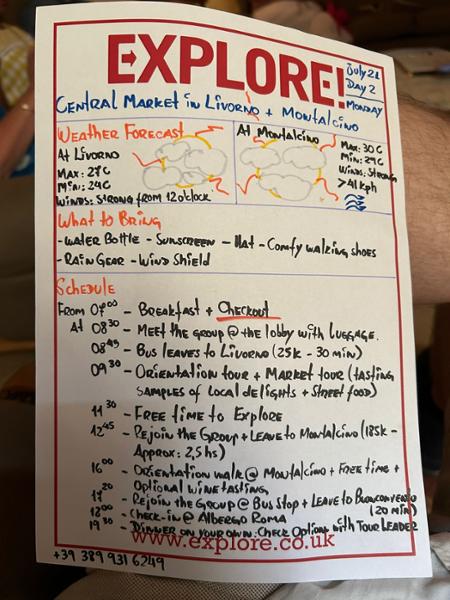 EXPLORE!
July 21
Day 2
Monday
Central Market in Livorno + Montalcino
Weather Forecast
At Livorno
Max: 27C
Min: 24C
Winds: Strong from 12 o'clock
At Montalcino
Max: 30C
Min: 29C
Winds: Strong
>41kph
What to Bring
- Water Bottle - Sunscreen - Hat - Comfy walking shoes
- Rain Gear - Wind Shield
Schedule
From 07:00 - Breakfast + Checkout
At 08:30 - Meet the group @ the lobby with luggage.
08:45 - Bus leaves to Livorno (25k - 30 min)
09:30 - Orientation tour + Market tour (tasting
samples of local delights + Street food)
11:30 - Free time to Explore
12:45 - Rejoin the Group + Leave to Montalcino (185k -
Approx: 2,5 hs)
16:00 - Orientation walk @ Montalcino + Free time +
Optional wine tasting
17:20 - Rejoin the Group @ Bus Stop + Leave to Buonconvento
(20 min)
18:00 - Check-in @ Albergo Roma
19:30 - Dinner on your own: Check Options with Tour Leader
www.explore.co.uk
+39 389 931 6249